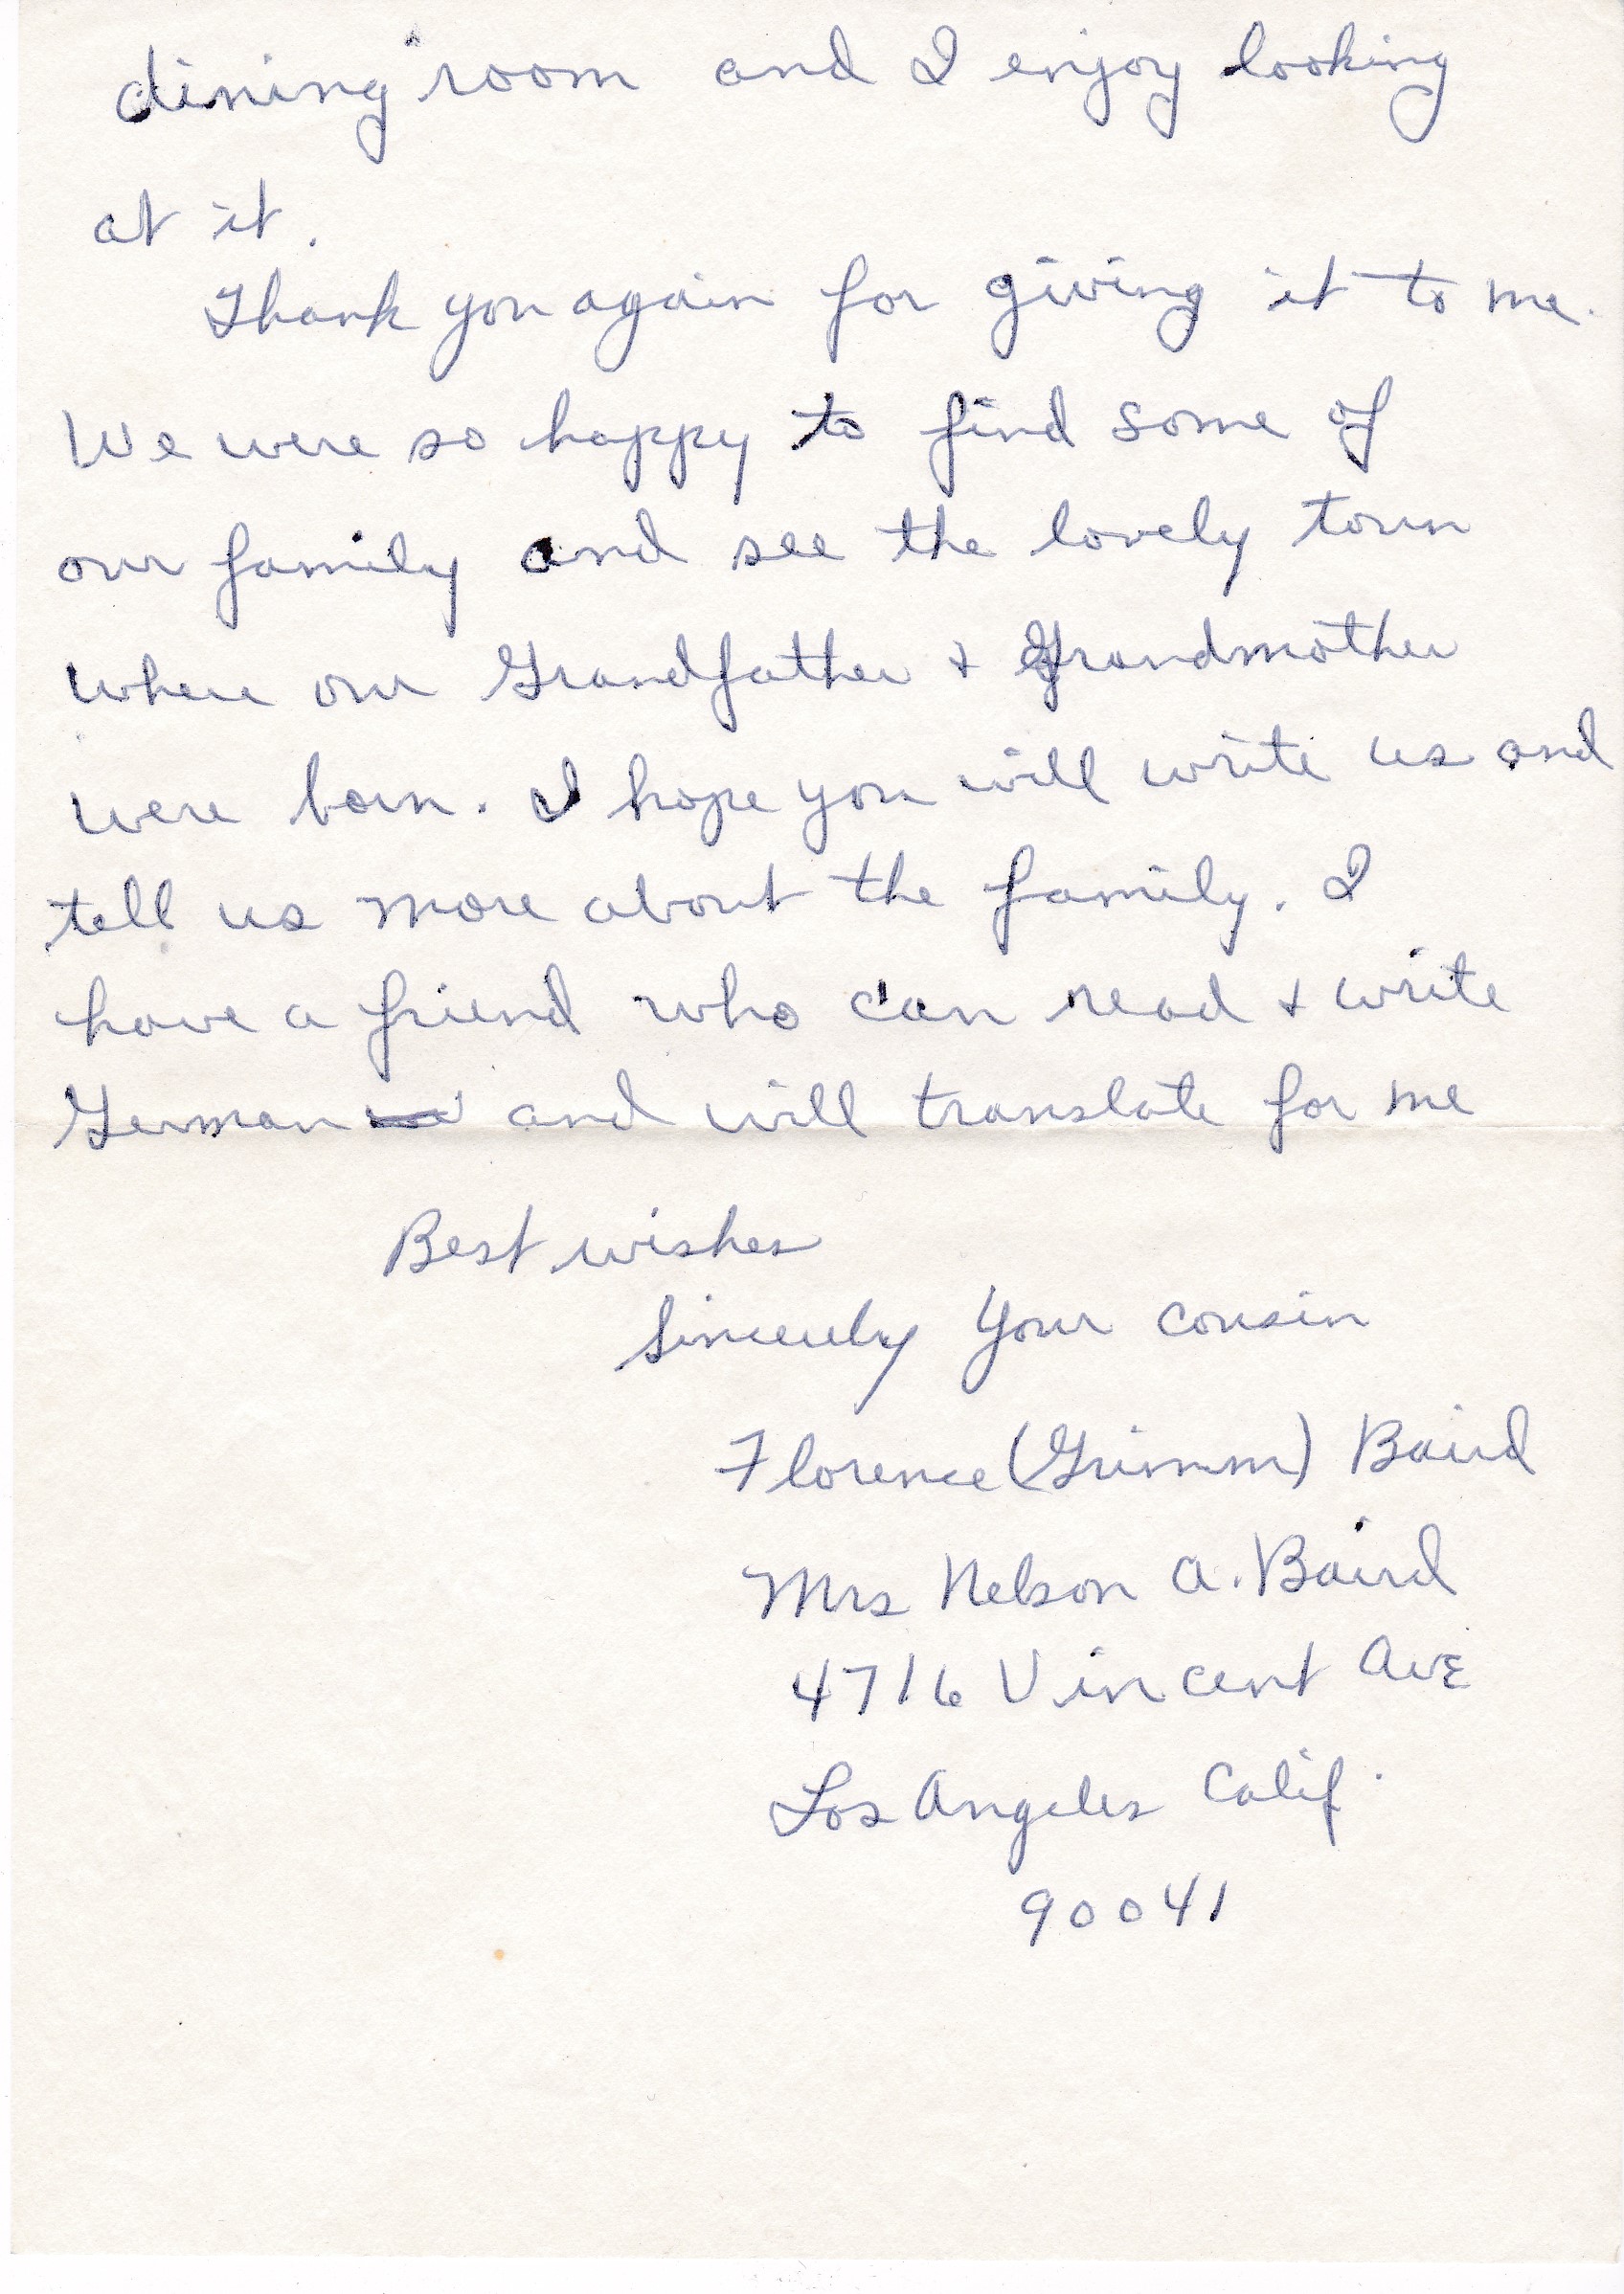 dining room and I enjoy looking
at it.
Thank you again for giving it to me.
We were so happy to find some of
our family and see the lovely town
where our Grandfather + Grandmother
were born. I hope you will write us and
tell us more about the family. I
have a friend who can read + write
German and will translate for me
Best wishes
Sincerely Your cousin
Florence (Grimm) Baird
Mrs Nelson A. Baird
4716 Vincent Ave
Los Angeles Calif.
90041